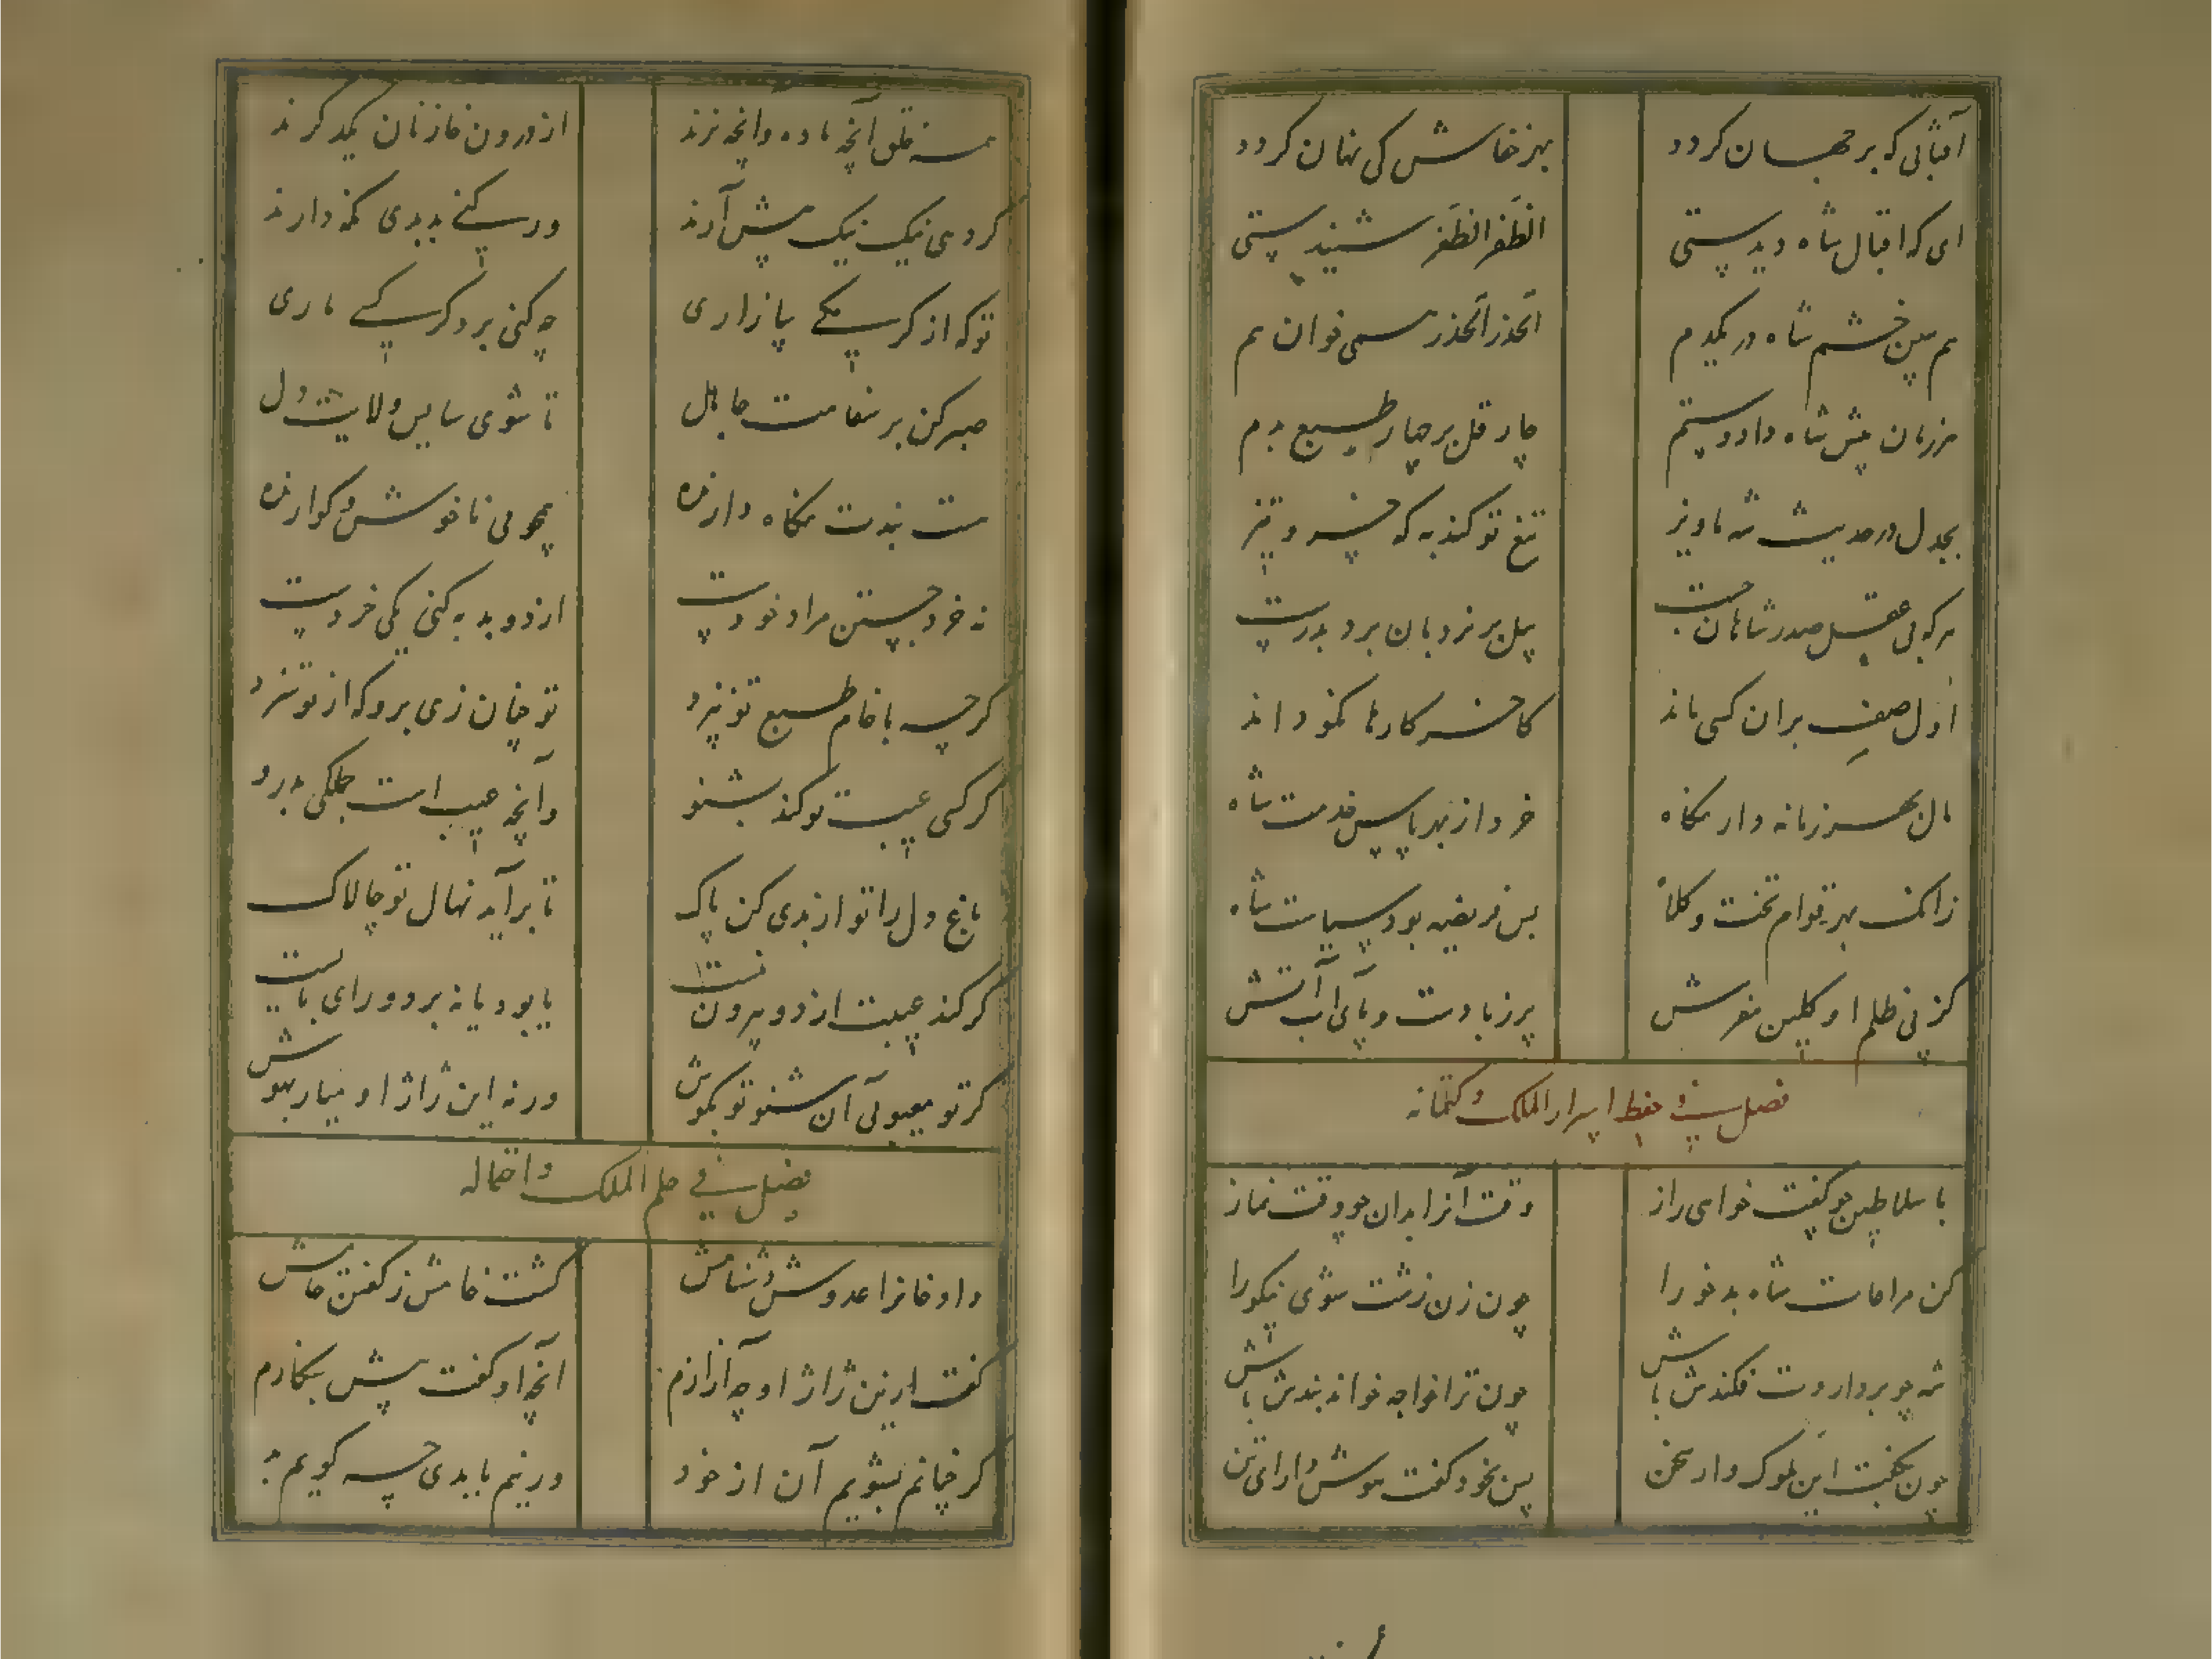 آفتابی که بر جهان گردد
بهر خفاش کی نهان گردد
ای که اقبال شاه دیدستی
الظفر الظفر شنیدستی
هم ببین خشم شاه در یکدم
الحذر الحذر همی خوان هم
هر زمان پیش شاه داد و ستم
چار قل بر چهار طبع بدم
بجدل در حدیث شه ماویز
تیغ تو کند به که خسرو تیز
هرکه بی عقل صدر شاهان جست
پیل بر نردبان برد بدرست
اول صف بران کسی ماند
کاخر کارها نکو داند
مال بهر زمانه دار نگاه
خرد از بهر پاس خدمت شاه
زانک بهر قوام تخت و کلاه
بس فریضه بود سیاست شاه
کز پی ظلم او گلین مفرش
پر ز بادست و پای آب آتش
فصل فی حفظ اسرار الملک و کتمانه
با سلاطین چو گفت خواهی راز
وقت آنرا بدان چو وقت نماز
کن مراعات شاه بدخو را
چون زن زشت شوی نیکو را
شه چو برداردت فکندش باش
چون ترا خواجه خواند بندش باش
چون بگفت این ملوک وار سخن
پس بخود گفت هوش دار ای تن
همه خلق آنچه ماده و آنچه نرند
از درون خازنان یکدگرند
گر دمی نیک نیک پیش آرند
ور کنی بد بدی نگه دارند
تو که از کرسیکی بیازاری
چه کنی برد گر کسی ماری
صبر کن بر سفاهت جاهل
تا شوی سایس ولایت دل
هست پندت نگاه دارنده
همچو می ناخوش و گوارنده
نه خرد جستن مراد خودست
از دو بد به کنی یکی خردست
گرچه با خام طبع تو نپزد
تو چنان زی برو که از تو سزد
گر کسی عیبت تو کند بشنو
وآنچه عیب است جملگی بدرو
باغ دل را تو از بدی کن پاک
تا برآید نهال تو چالاک
گر کند عیبت از دو بیرون نیست
یا بود یا نه برد و رای بایست
گر تو معیوبی آن شنو تو بگوش
ورنه این ژاژ او میار بهوش
فصل فی حلم الملک و احتماله
داد خانرا عدوش دشنامش
گشت خامش ز گفتن خامش
گفت ازین ژاژ او چه آزارم
آنچه او گفت پیش بگذارم
گر چنانم بشویم آن از خود
ور نیم با بدی چه گویم بد